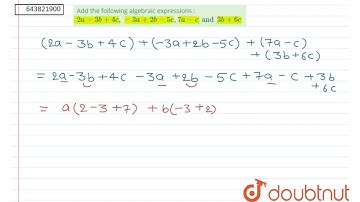 643821900
Add the following algebraic expressions :
2a − 3b + 4c, − 3a + 2b − 5c, 7a − c and 3b + 6c
(2a - 3b + 4c) + (-3a + 2b - 5c) + (7a - c)
+ (3b + 6c)
= 2a - 3b + 4c - 3a + 2b - 5c + 7a - c + 3b
+ 6c
= a(2 - 3 + 7) + b(-3 + 2)
doubtnut